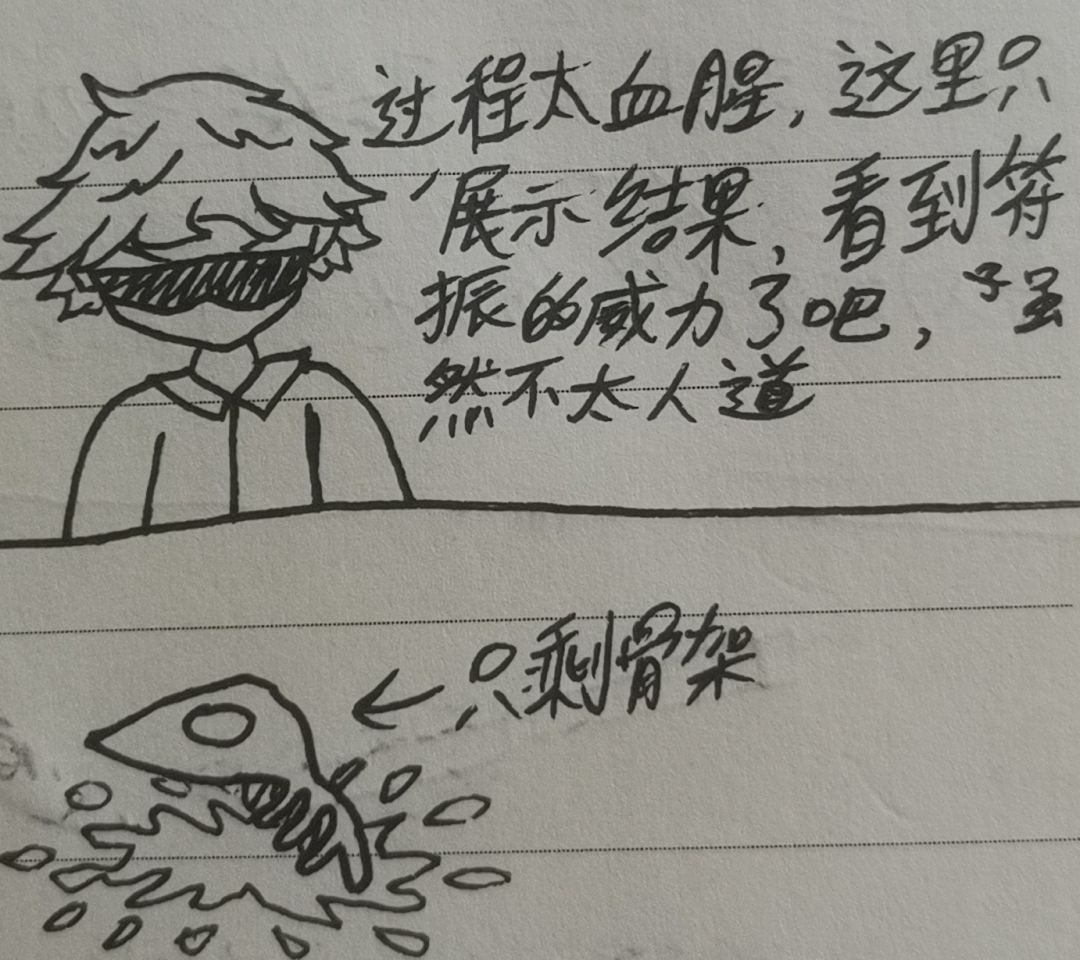 过程太血腥，这里只
展示结果，看到符
振的威力了吧，虽
然不太人道
只剩骨架